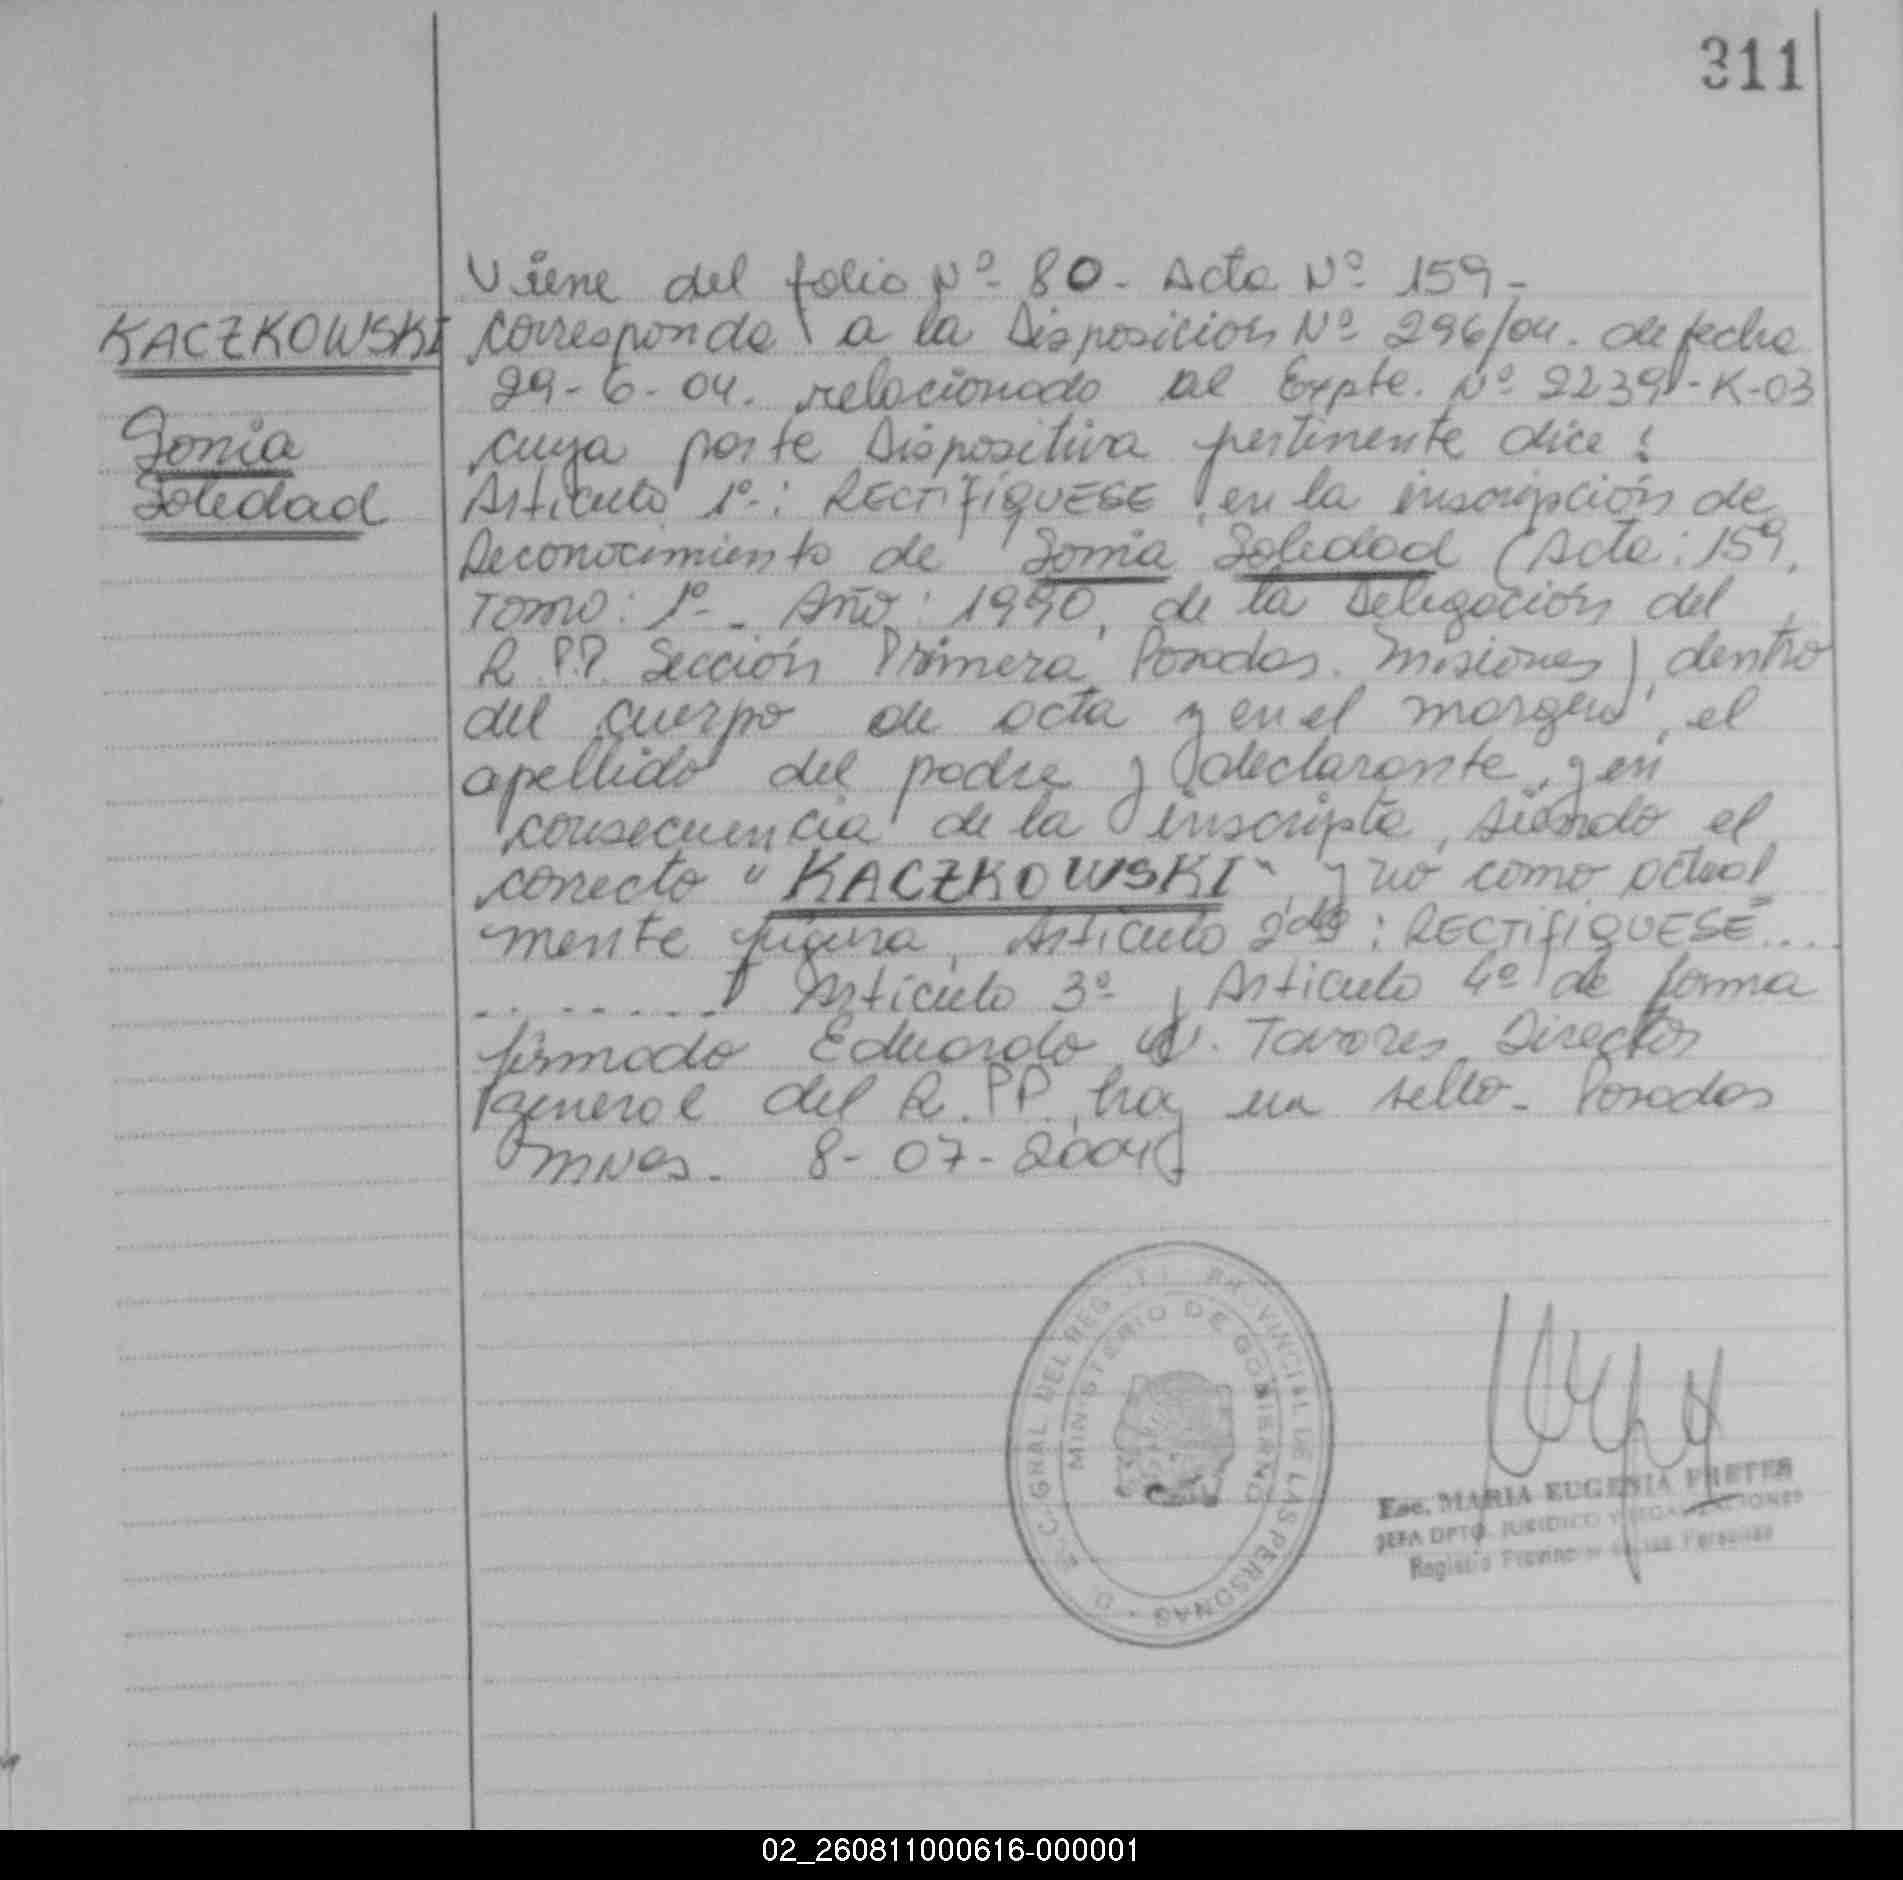 311
Viene del folio Nº 80 - Acta Nº 159 -
KACZKOWSKI
Sonia
Soledad
corresponde a la Disposición Nº 296/04. de fecha
29-6-04. relacionado al Expte. Nº 2239-K-03
cuya parte Dispositiva pertinente dice:
Artículo 1º-: RECTIFIQUESE en la inscripción de
Reconocimiento de Sonia Soledad (Acta: 159.
Tomo: 1º - Año: 1990, de la Delegación del
R.P.P. Sección Primera Posadas. Misiones), dentro
del cuerpo de acta y en el margen, el
apellido del padre y declarante, y en
consecuencia de la inscripta, siendo el
correcto "KACZKOWSKI" y no como actual
mente figura, Artículo 2do: RECTIFIQUESE....
........ Artículo 3º y Artículo 4º de forma
firmado Eduardo W. Tavares Director
general del R.P.P. hay un sello - Posadas
Mnes. 8-07-2004
DIREC. GRAL DEL REG. PROVINCIAL DE LAS PERSONAS
MINISTERIO DE GOBIERNO
Esc. MARIA EUGENIA FRETES
JEFA DPTO. JURIDICO Y
Registro Provincial de las Personas
02_260811000616-000001